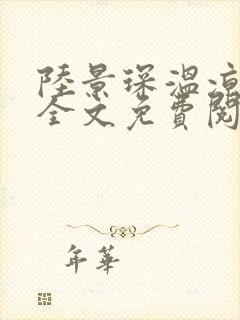 陸景琛溫涼
全文免費閱
年華